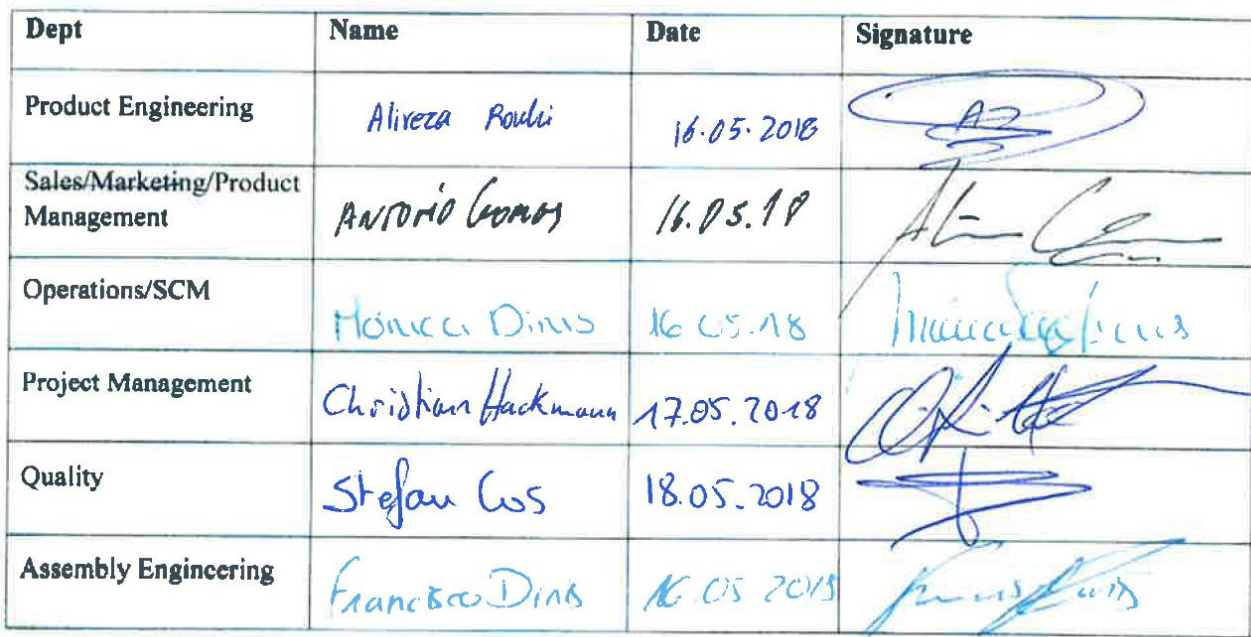 Dept Name Date Signature
Product Engineering Alireza Rouhi 16.05.2018
Sales/Marketing/Product
Management António Gomes 16.05.18
Operations/SCM
Mónica Dinis 16 05.18
Project Management Christian Hackmann 17.05.2018
Quality Stefan Cos 18.05.2018
Assembly Engineering Francisco Dinis 16 05 2018